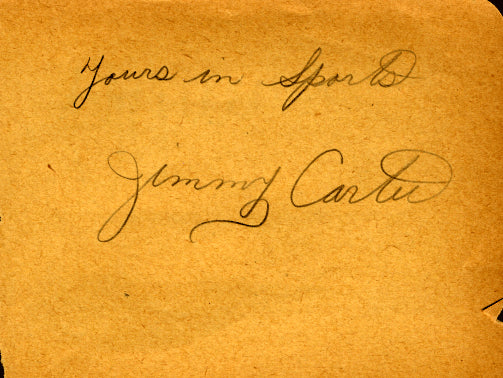 Yours in Sports
Jimmy Carter